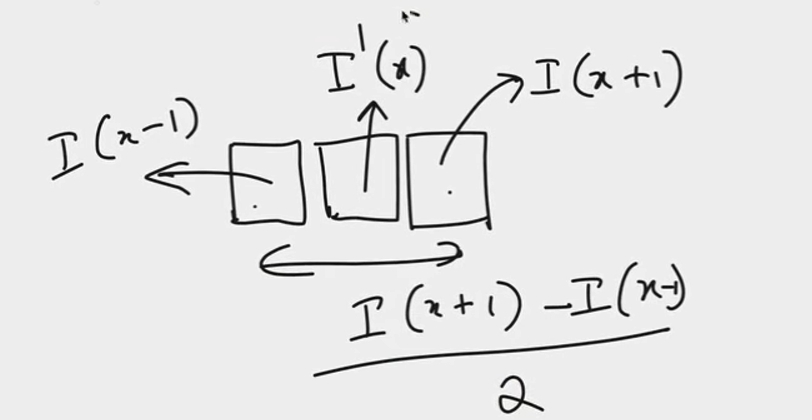 I'(x)
I(x+1)
I(x-1)
I(x+1) - I(x-1)
2